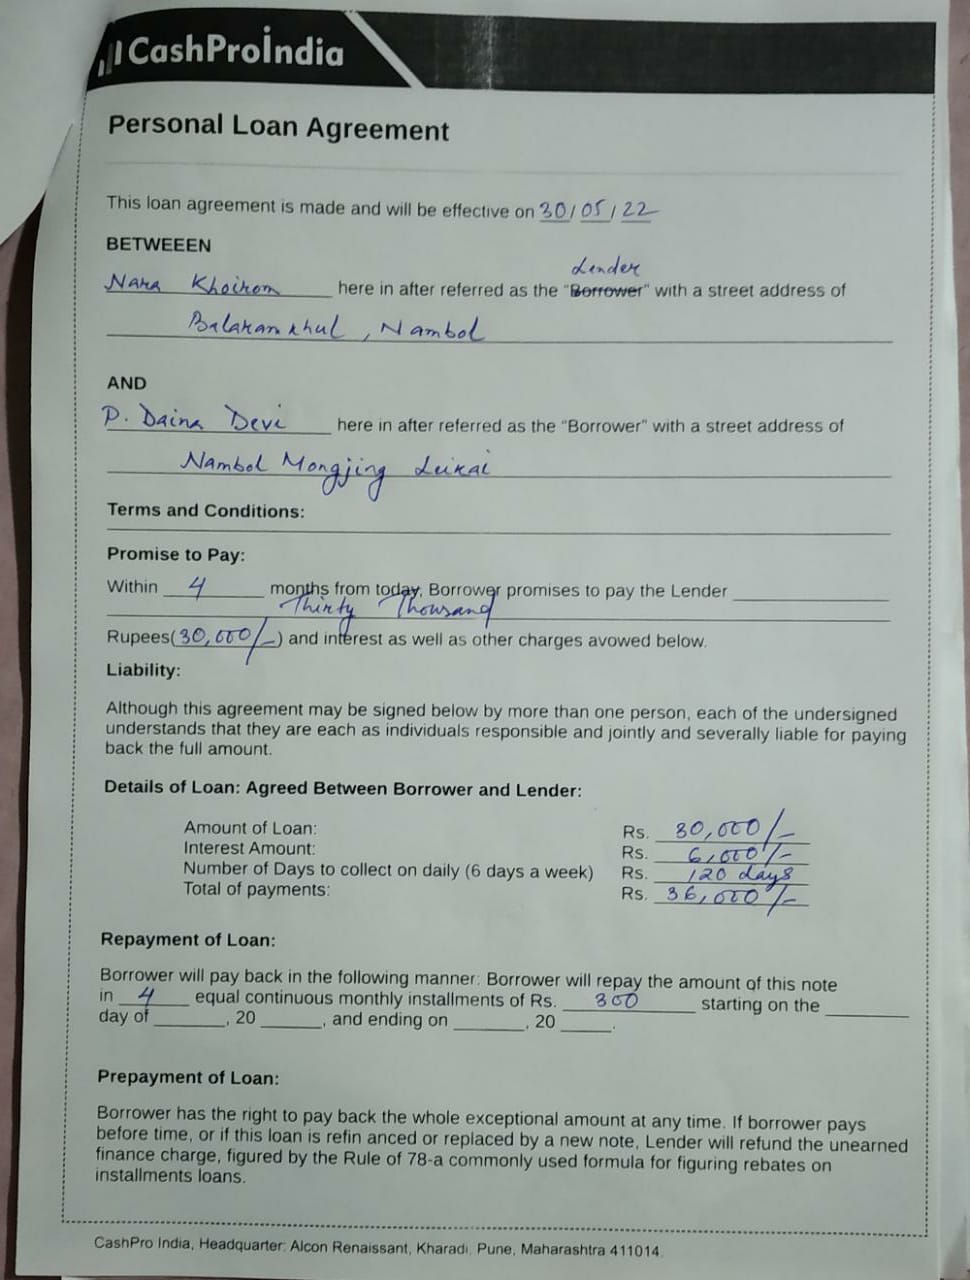 CashProIndia
Personal Loan Agreement
This loan agreement is made and will be effective on 30/05/22
BETWEEEN
Lender
Nara Khoirom here in after referred as the "Borrower" with a street address of
Balaramkhul, Nambol
AND
P. Daina Devi here in after referred as the "Borrower" with a street address of
Nambol Mongjing Leikai
Terms and Conditions:
Promise to Pay:
Within 4 months from today, Borrower promises to pay the Lender
Thirty Thousand
Rupees(30,000/-) and interest as well as other charges avowed below.
Liability:
Although this agreement may be signed below by more than one person, each of the undersigned
understands that they are each as individuals responsible and jointly and severally liable for paying
back the full amount.
Details of Loan: Agreed Between Borrower and Lender:
Amount of Loan: Rs. 30,000/-
Interest Amount: Rs. 6,000/-
Number of Days to collect on daily (6 days a week) Rs. 120 days
Total of payments: Rs. 36,000/-
Repayment of Loan:
Borrower will pay back in the following manner: Borrower will repay the amount of this note
in 4 equal continuous monthly installments of Rs. 300 starting on the
day of , 20 , and ending on , 20 .
Prepayment of Loan:
Borrower has the right to pay back the whole exceptional amount at any time. If borrower pays
before time, or if this loan is refin anced or replaced by a new note, Lender will refund the unearned
finance charge, figured by the Rule of 78-a commonly used formula for figuring rebates on
installments loans.
CashPro India, Headquarter: Alcon Renaissant, Kharadi, Pune, Maharashtra 411014.